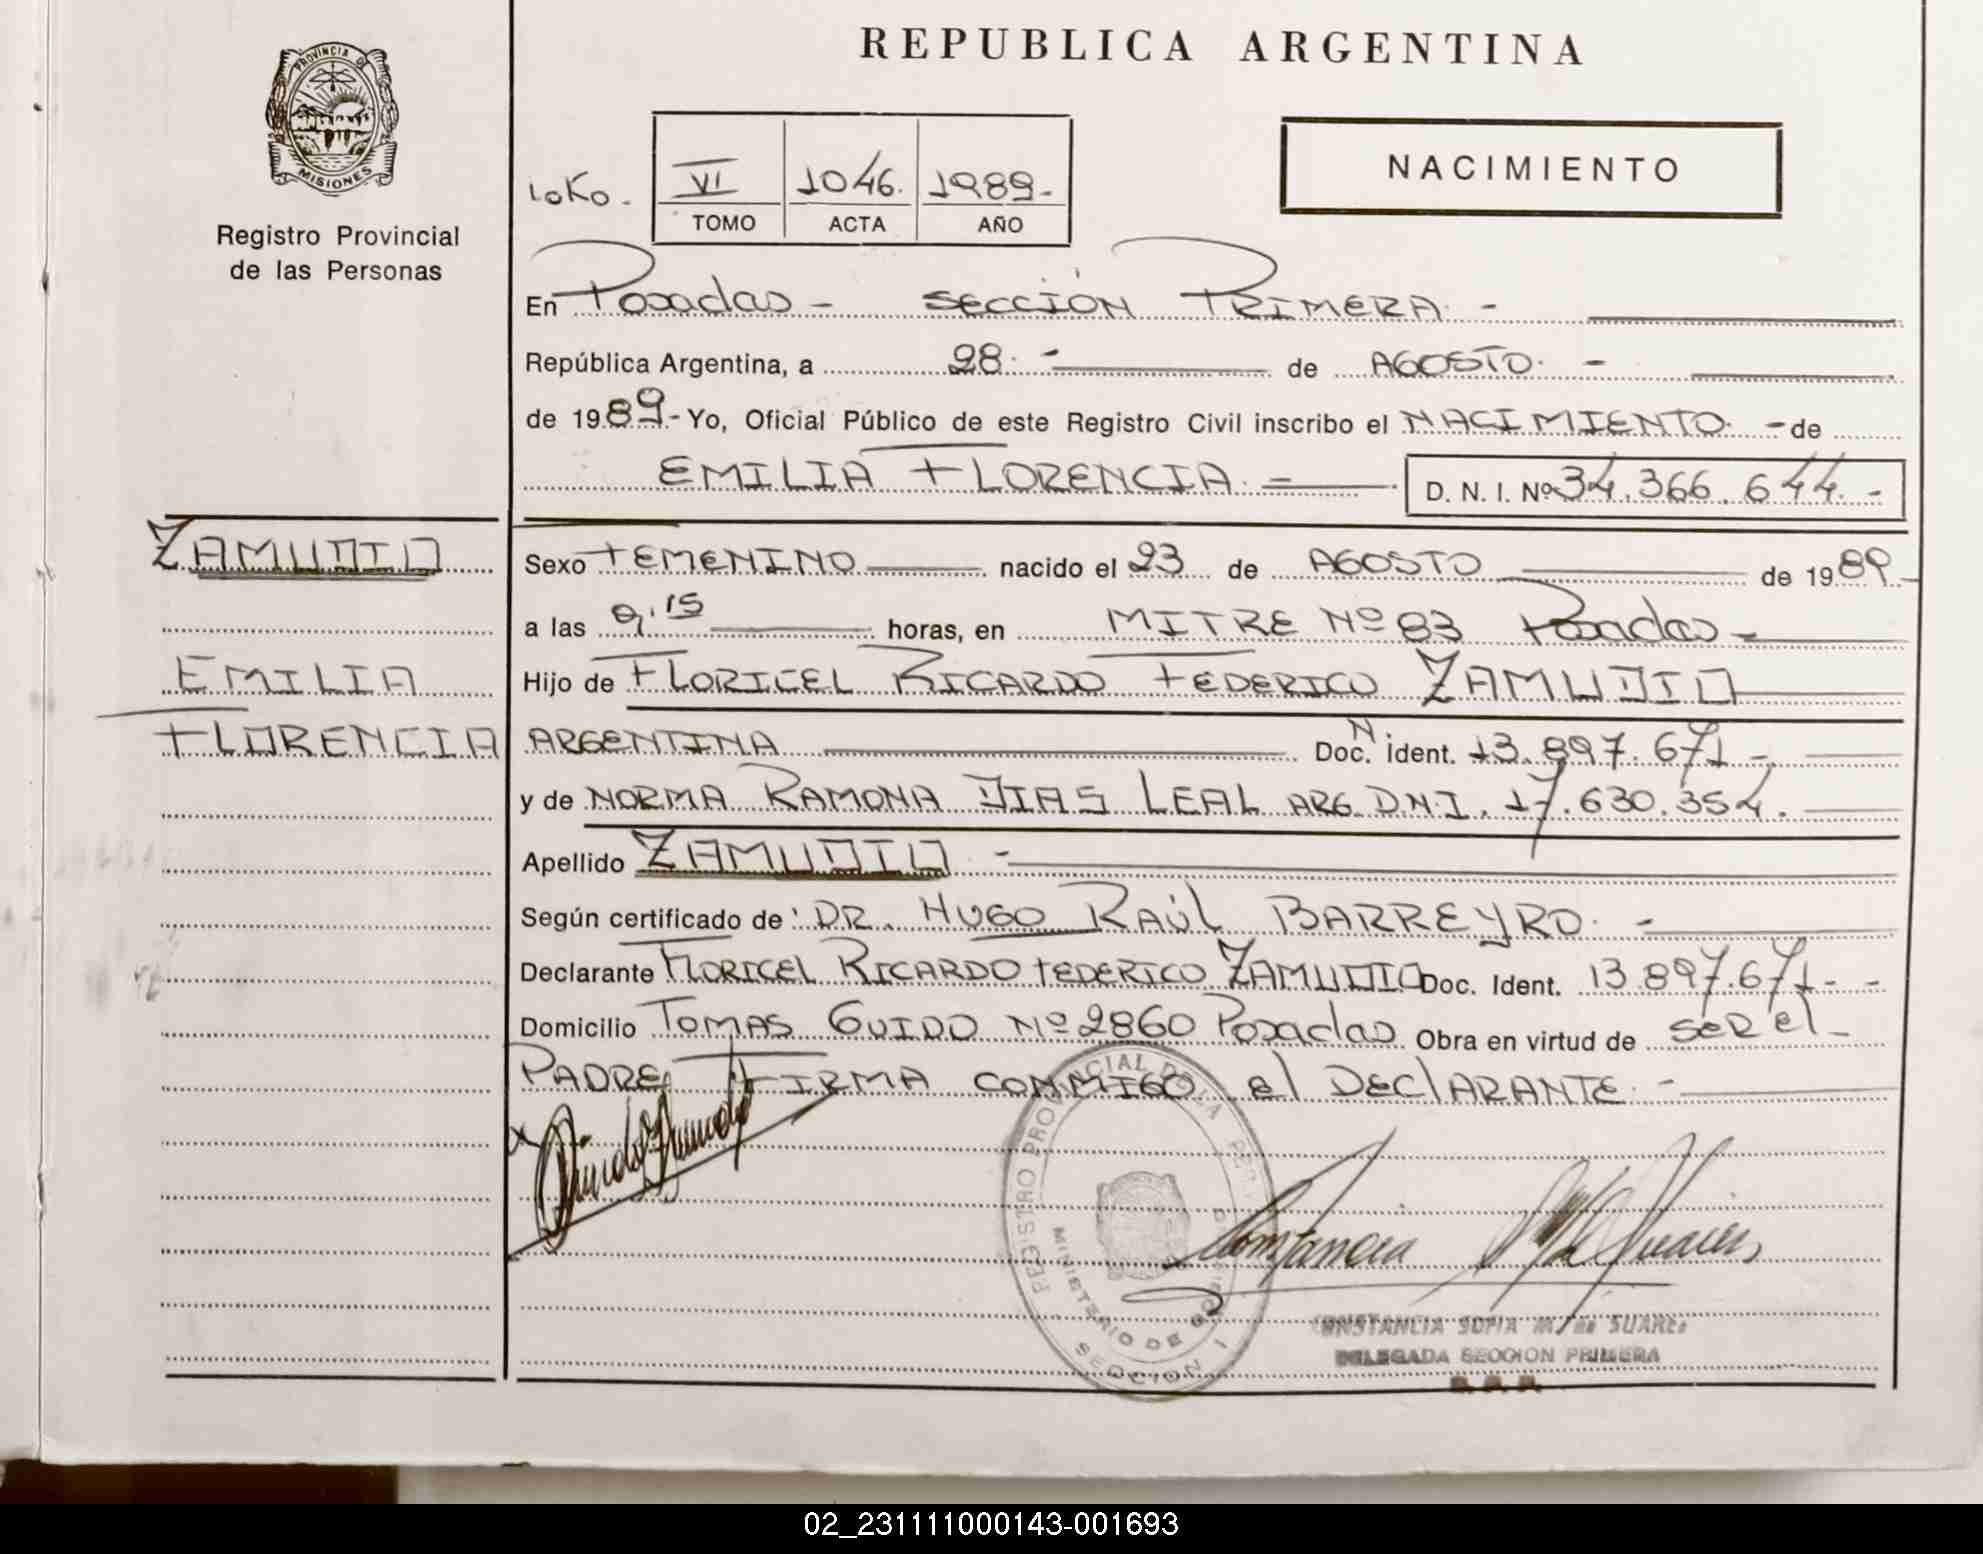 REPUBLICA ARGENTINA
PROVINCIA DE
MISIONES
Registro Provincial
de las Personas
NACIMIENTO
VI 1046. 1989.-
TOMO ACTA AÑO
En Posadas - SECCIÓN PRIMERA. -
República Argentina, a 28. - de AGOSTO. -
de 1989.- Yo, Oficial Público de este Registro Civil inscribo el NACIMIENTO. - de
EMILIA FLORENCIA. = D. N. I. Nº 34.366.644.-
ZAMUDIO
EMILIA
FLORENCIA
Sexo FEMENINO nacido el 23 de AGOSTO de 1989.-
a las 9,15 horas, en MITRE Nº 83 Posadas -
Hijo de FLORICEL RICARDO FEDERICO ZAMUDIO
ARGENTINA Doc. N ident. 13.897.671 -
y de NORMA RAMONA DIAS LEAL ARG. D.N.I. 17.630.354.
Apellido ZAMUDIO. -
Según certificado de: DR. HUGO RAÚL BARREYRO. -
Declarante FLORICEL RICARDO FEDERICO ZAMUDIO Doc. Ident. 13.897.671 - -
Domicilio TOMAS GUIDO Nº 2860 Posadas. Obra en virtud de SER el -
PADRE, FIRMA CONMIGO el DEClARANTE. -
REGISTRO PROVINCIAL DE LA
MINISTERIO DE
SECCION 1
Constancia
CONSTANCIA SOFIA M. de SUAREZ
DELEGADA SECCION PRIMERA
02_231111000143-001693